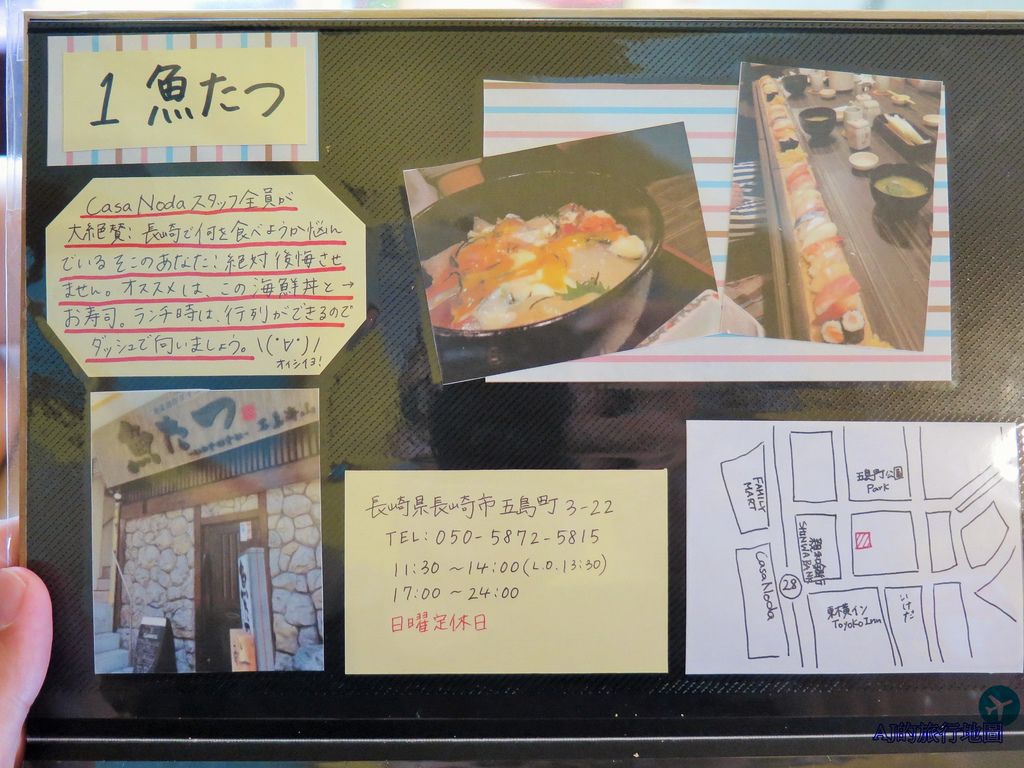 1 魚たつ
Casa Noda スタッフ全員が
大絶賛!長崎で何を食べようか悩ん
でいるそこのあなた!絶対後悔させ
ません。オススメは、この海鮮丼と→
お寿司。ランチ時は、行列ができるので
ダッシュで向いましょう。\(°∀°)/
オイシイヨ!
魚たつ
長崎県長崎市五島町 3-22
TEL: 050-5872-5815
11:30 ~ 14:00 (L.O. 13:30)
17:00 ~ 24:00
日曜定休日
FAMILY
MART
五島町公園
Park
親和銀行
SHINWA BANK
Casa Noda
29
東横イン
Toyoko Inn
いけだ
AJ的旅行地圖